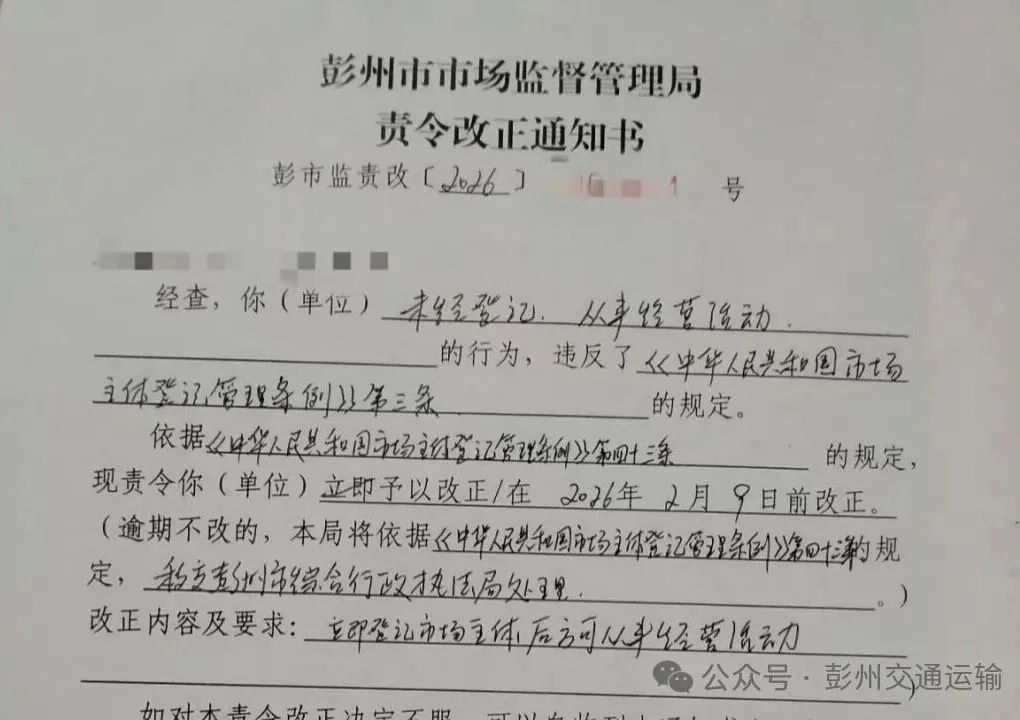 彭州市市场监督管理局
责令改正通知书
彭市监责改〔2026〕 号
经查，你（单位）未经登记、从事经营活动.
的行为，违反了《中华人民共和国市场
主体登记管理条例》第三条 的规定。
依据《中华人民共和国市场主体登记管理条例》第四十三条 的规定，
现责令你（单位）立即予以改正/在 2026年 2月 9日前改正。
（逾期不改的，本局将依据《中华人民共和国市场主体登记管理条例》第四十三条的规
定，移交彭州市综合行政执法局处理. 。）
改正内容及要求：立即登记市场主体后方可从事经营活动
）
公众号·彭州交通运输
如对本责令改正决定不服，可以自收到本通知书